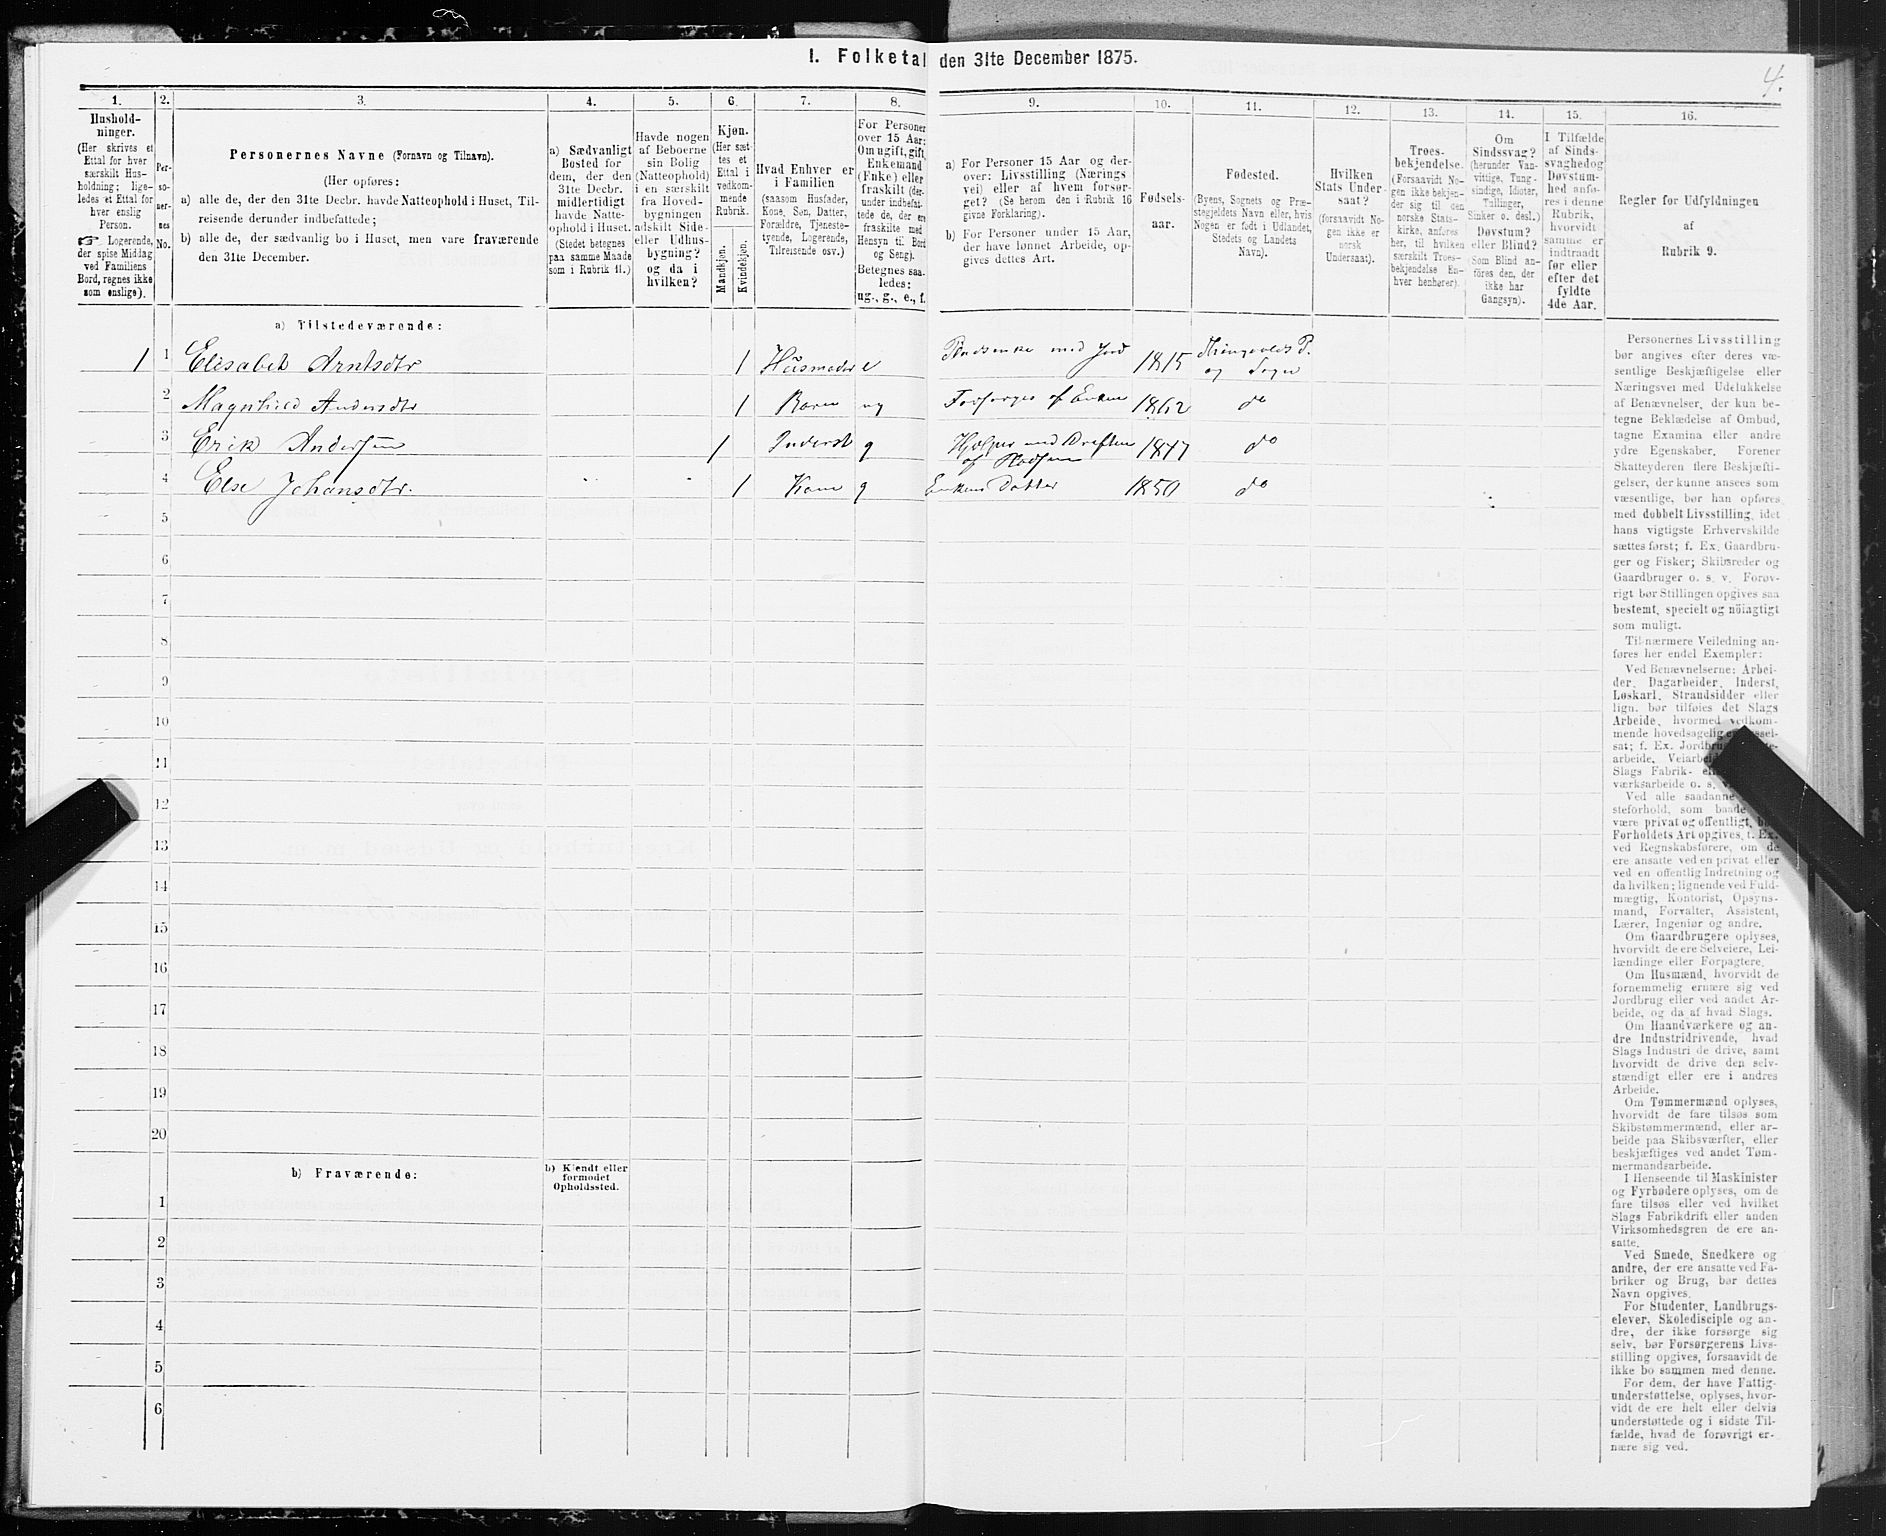 I. Folketal den 31te December 1875.
4.
1.
2.
3.
4.
5.
6.
7.
8.
9.
10.
11.
12.
13.
14.
15.
16.
Hushold-
ninger.
(Her skrives et
Ettal for hver
særskilt Hus-
holdning; lige-
ledes et Ettal for
hver enslig
Person.
☞ Logerende,
der spise Middag
ved Familiens
Bord, regnes ikke
som enslige).
Per-
so-
ner-
nes
No.
Personernes Navne (Fornavn og Tilnavn).
(Her opføres:
a) alle de, der den 31te Decbr. havde Natteophold i Huset, Til-
reisende derunder indbefattede;
b) alle de, der sædvanlig bo i Huset, men vare fraværende
den 31te December.
a) Sædvanligt
Bosted for
dem, der den
31te Decbr.
midlertidigt
havde Natte-
ophold i Huset.
(Stedet betegnes
paa samme Maade
som i Rubrik 11.)
Havde nogen
af Beboerne
sin Bolig
(Natteophold)
i en særskilt
fra Hoved-
bygningen
adskilt Side-
eller Udhus-
bygning?
og da i
hvilken?
Kjøn.
(Her sæt-
tes et
Ettal i
vedkom-
mende
Rubrik.
Mandkjøn.
Kvindekjøn.
Hvad Enhver er
i Familien
(saasom Husfader,
Kone, Søn, Datter,
Forældre, Tjeneste-
tyende, Logerende,
Tilreisende osv.)
For Personer
over 15 Aar:
Om ugift, gift,
Enkemand
(Enke) eller
fraskilt (der-
under indbefat-
tede de, der ere
fraskilte med
Hensyn til Bord
og Seng).
Betegnes saa-
ledes:
ug., g., e., f.
a) For Personer 15 Aar og der-
over: Livsstilling (Nærings-
vei) eller af hvem forsør-
get? (Se herom den i Rubrik 16
givne Forklaring).
b) For Personer under 15 Aar,
der have lønnet Arbeide, op-
gives dettes Art.
Fødsels-
aar.
Fødested.
(Byens, Sognets og Præ-
stegjeldets Navn eller, hvis
Nogen er født i Udlandet,
Stedets og Landets
Navn).
Hvilken
Stats Under-
saat?
(forsaavidt No-
gen ikke er
norsk
Undersaat).
Troes-
bekjendelse.
(Forsaavidt No-
gen ikke bekjen-
der sig til den
norske Stats-
kirke, anføres
her, til hvilken
særskilt Troes-
bekjendelse En-
hver henhører).
Om
Sindssvag?
(herunder Van-
vittige, Tung-
sindige, Idioter,
Tullinger,
Sinker o. desl.)
Døvstum?
eller Blind?
(Som Blind an-
føres den, der
ikke har
Gangsyn).
I Tilfælde
af Sinds-
svaghed og
Døvstum-
hed anfø-
res i denne
Rubrik,
hvorvidt
samme er
indtraadt
før eller
efter det
fyldte
4de Aar.
Regler for Udfyldningen
af
Rubrik 9.
a) Tilstedeværende:
1 1 Elisabet Arntsdtr 1 Husmoder e Pladsenke med Jord 1815 Thingvolds P. og Sogn
2 Magnhild Andersdtr 1 Barn ug Forsørges af Enken 1862 do
3 Erik Andersen 1 Inderst g Hjelper med Driften af Pladsen 1847 do
4 Else Johansdtr. 1 Kone g Enkens Datter 1850 do
5
6
7
8
9
10
11
12
13
14
15
16
17
18
19
20
b) Fraværende:
b) Kjendt eller
formodet
Opholdssted.
1
2
3
4
5
6
Personernes Livsstilling
bør angives efter deres væ-
sentlige Beskjæftigelse eller
Næringsvei med Udelukkelse
af Benævnelser, der kun be-
tegne Beklædelse af Ombud,
tagne Examina eller andre
ydre Egenskaber. Forener
Skatteyderen flere Beskjæfti-
gelser, der kunne ansees som
væsentlige, bør han opføres
med dobbelt Livsstilling, idet
hans vigtigste Erhvervskilde
sættes først; f. Ex. Gaardbru-
ger og Fisker; Skibsreder og
Gaardbruger o. s. v. Forøv-
rigt bør Stillingen opgives saa
bestemt, specielt og nöiagtigt
som muligt.
Til nærmere Veiledning an-
føres her endel Exempler:
Ved Benævnelserne: Arbei-
der, Dagarbeider, Inderst,
Løskarl, Strandsidder eller
lign. bør tilføies det Slags
Arbeide, hvormed vedkom-
mende hovedsagelig
sat; f. Ex.
arbeide,
Slags Fabrik-
værksarbeide o. s.
Ved alle saadanne
steforhold, som baade
være privat og offentligt,
Forholdets Art opgives, f. Ex.
ved Regnskabsførere, om de
ere ansatte ved en privat eller
ved en offentlig Indretning og
da hvilken; lignende ved Fuld-
mægtig, Kontorist, Opsyns-
mand, Forvalter, Assistent,
Lærer, Ingeniør og andre.
Om Gaardbrugere oplyses,
hvorvidt de ere Selveiere, Lei-
lændinge eller Forpagtere.
Om Husmænd, hvorvidt de
fornemmelig ernære sig ved
Jordbrug eller ved andet Ar-
beide, og da af hvad Slags.
Om Haandværkere og an-
dre Industridrivende, hvad
Slags Industri de drive, samt
hvorvidt de drive den selv-
stændigt eller ere i andres
Arbeide.
Om Tømmermænd oplyses,
hvorvidt de fare tilsøs som
Skibstømmermænd, eller ar-
beide paa Skibsværfter, eller
beskjæftiges ved andet Tøm-
mermandsarbeide.
I Henseende til Maskinister
og Fyrbødere oplyses, om de
fare tilsøs eller ved hvilket
Slags Fabrikdrift eller anden
Virksomhedsgren de ere an-
satte.
Ved Smede, Snedkere og
andre, der ere ansatte ved Fa-
briker og Brug, bør dettes
Navn opgives.
For Studenter, Landbrugs-
elever, Skoledisciple og an-
dre, der ikke forsørge sig
selv, bør Forsørgerens Livs-
stilling opgives, forsaavidt de
ikke bo sammen med denne.
For dem, der have Fattig-
understøttelse, oplyses, hvor-
vidt de ere helt eller delvis
understøttede og i sidste Til-
fælde, hvad de forøvrigt er-
nære sig ved.